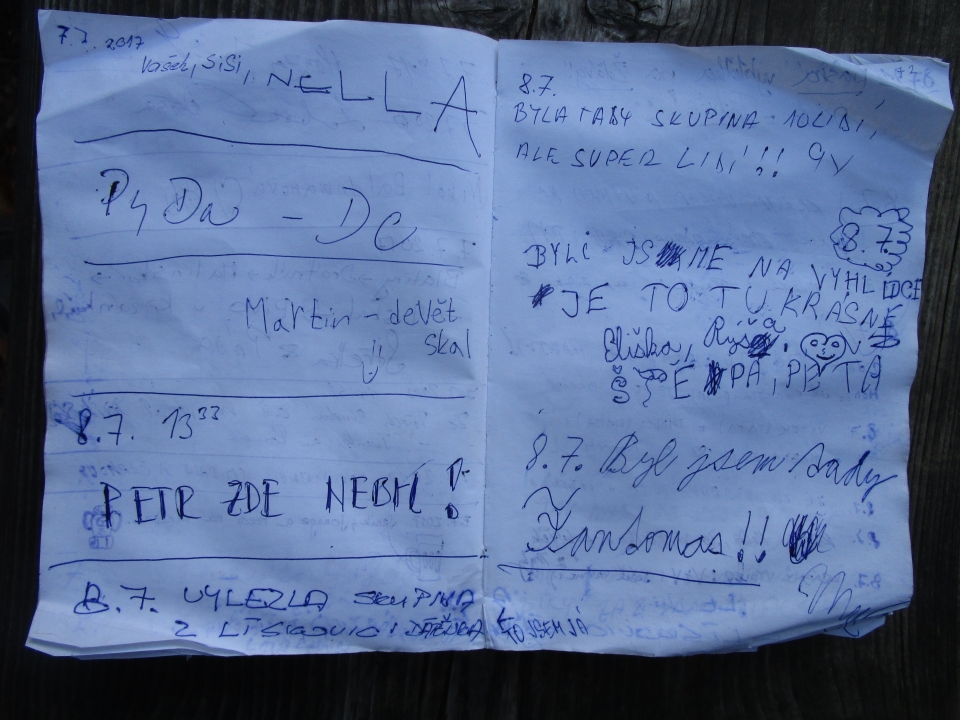 7.7. 2017
Vašek, SiSi, NELLA
PyDa - DC
Martin - devět
skal
8.7. 13³³
PETR ZDE NEBYL!
8.7. VYLEZLA SKUPINA
Z
TO JSEM JÁ
8.7.
BYLA TADY SKUPINA 10 LIDÍ,
ALE SUPER LIDÍ!!!
8.7.
BYLI JSME NA VYHLÍDCE
JE TO TU KRÁSNĚ
Eliška,
PÁ, PETA
8.7. Byl jsem tady
Fantomas!!